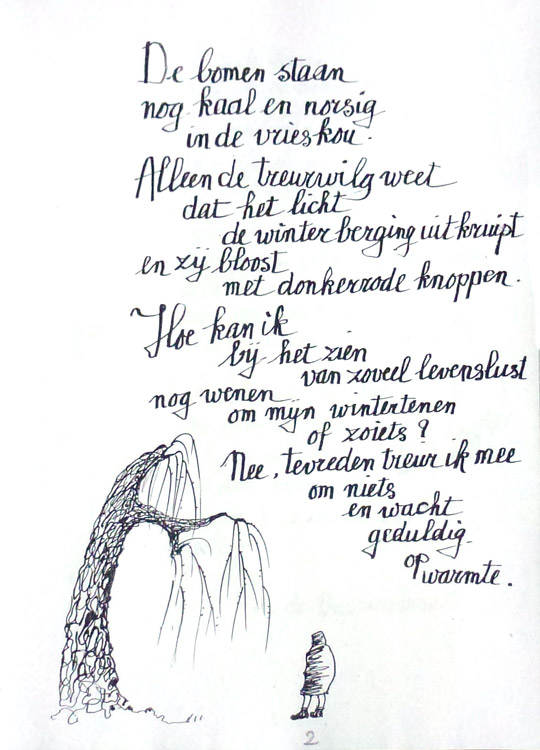 De bomen staan
nog kaal en norsig
in de vrieskou.
Alleen de treurwilg weet
dat het licht
de winterberging uitkruipt
en zij bloost
met donkerrode knoppen.
Hoe kan ik
bij het zien
van zoveel levenslust
nog wenen
om mijn wintertenen
of zoiets?
Nee, tevreden treur ik mee
om niets
en wacht
geduldig
op warmte.
2